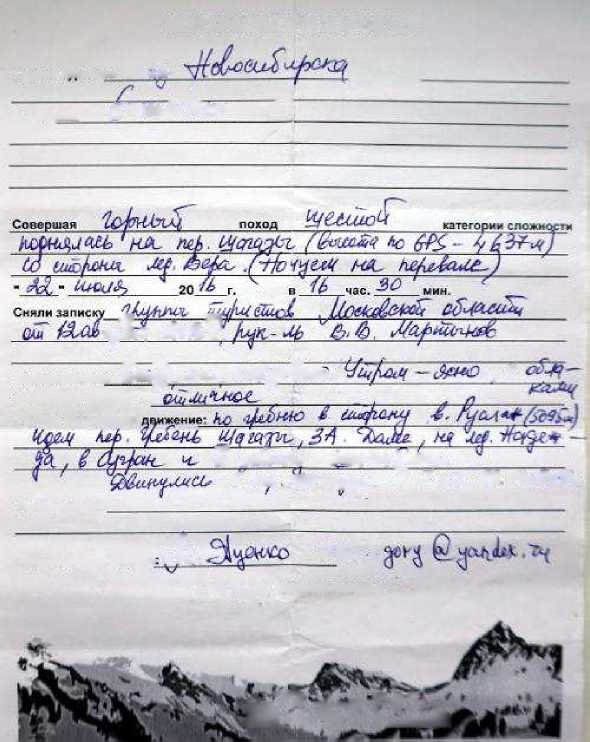 Новосибирска
Совершая горный поход шестой категории сложности
поднялась на пер. Шагазы (высота по GPS – 4637 м)
со стороны лед. Вера. (Ночуем на перевале)
"22" июля 2016 г. в 16 час. 30 мин.
Сняли записку группы туристов Московской области
от 12 ав , рук-ль В.В. Мартынов
Утром – ясно, обла-
отличное ками
движение: по гребню в сторону в. (5095м)
идем пер. Гребень Шагазы, ЗА. Даме, на лед. Надеж-
да, в Сугран и
Двинулись
Яценко gory@yandex.ru